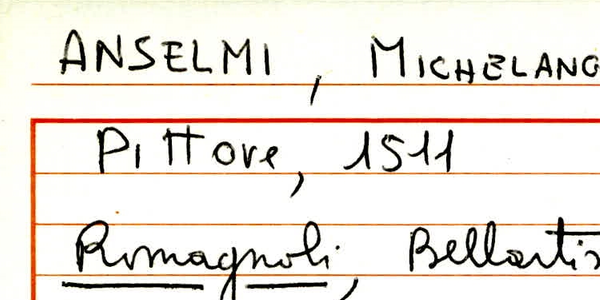 ANSELMI, MICHELANG
Pittore, 1511
Romagnoli, Bellartis